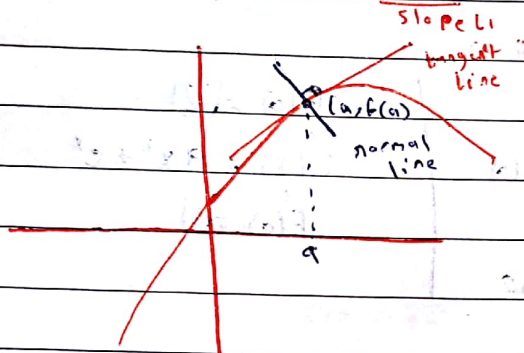 slope L1
tangent
line
(a, f(a)
normal
line
a